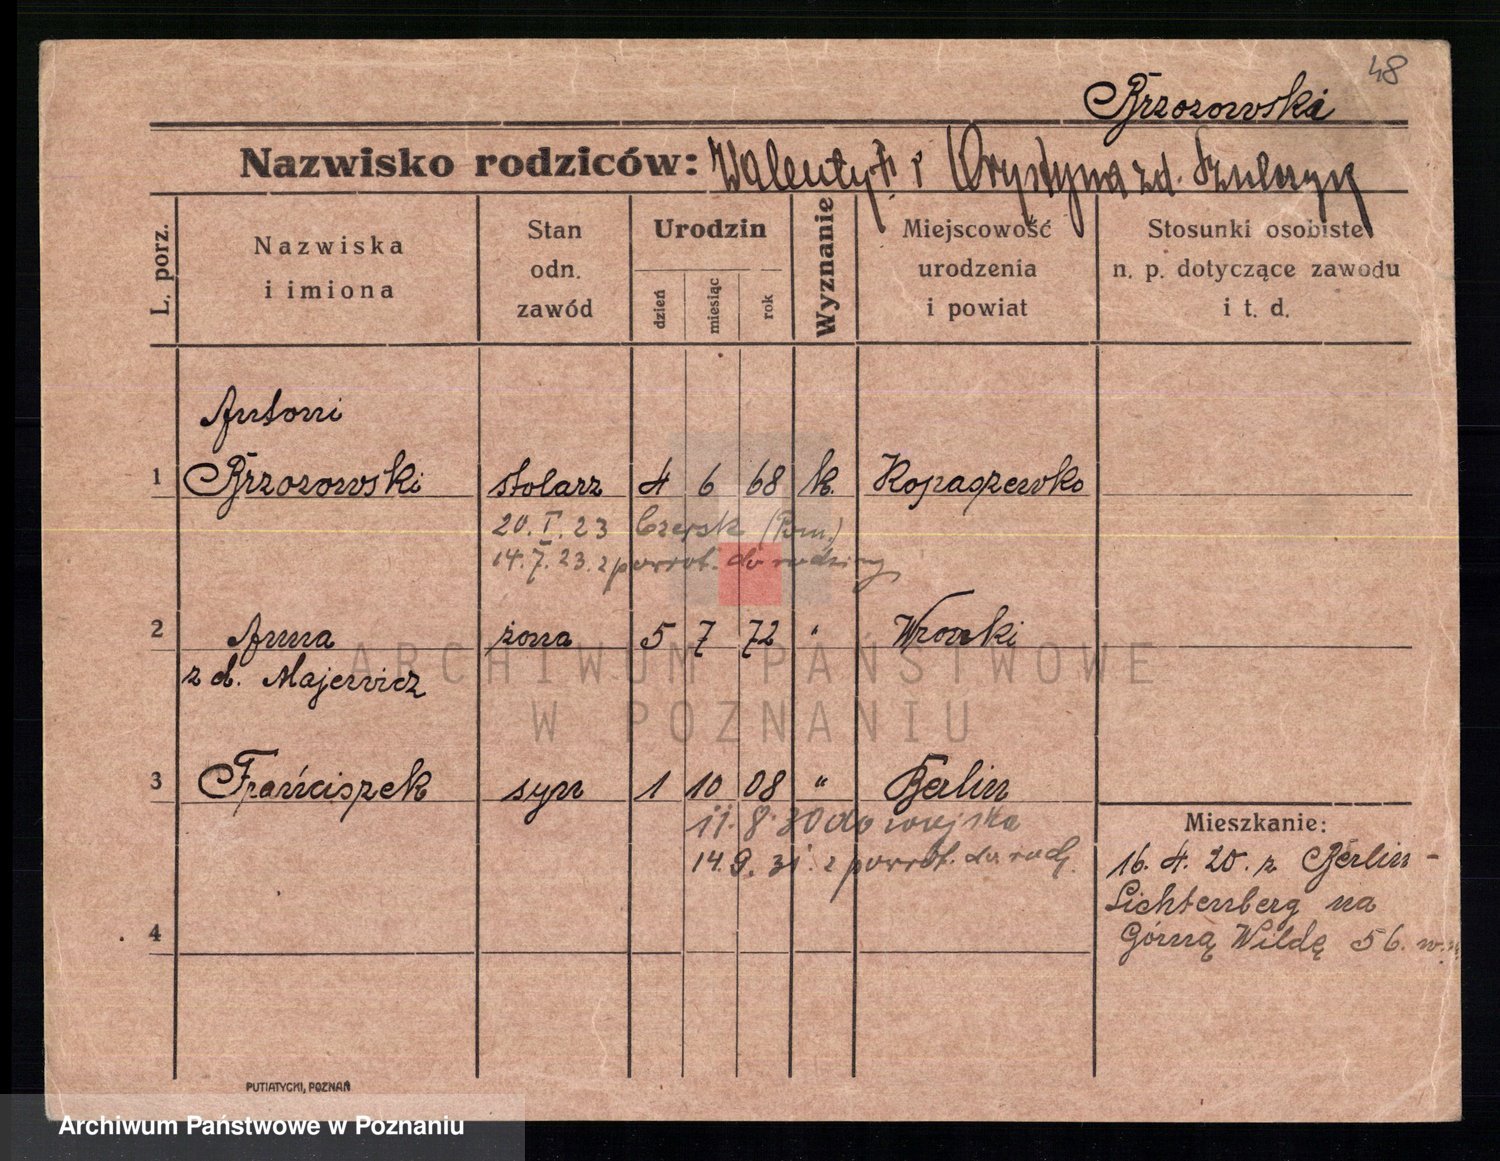 48
Brzozowski
Nazwisko rodziców: Walenty † i Krystyna z d. Szulczyk
L. porz.
Nazwiska
i imiona
Stan
odn.
zawód
Urodzin
dzień
miesiąc
rok
Wyznanie
Miejscowość
urodzenia
i powiat
Stosunki osobiste
n. p. dotyczące zawodu
i t. d.
Antoni
1 Brzozowski stolarz 4 6 68 k. Kopaszewko
20. I. 23 Czersk (Pom.)
14. 7. 23. z powrot. do rodziny
2 Anna żona 5 7 72 " Wronki
z d. Majewicz
3 Franciszek syn 1 10 08 " Berlin
11. 8. 30 do wojska
14. 9. 31. z powrot. do rodz.
4
Mieszkanie:
16. 4. 20. z Berlin-
Lichtenberg na
Górną Wildę 56.
PUTIATYCKI, POZNAŃ
ARCHIWUM PAŃSTWOWE
W POZNANIU
Archiwum Państwowe w Poznaniu